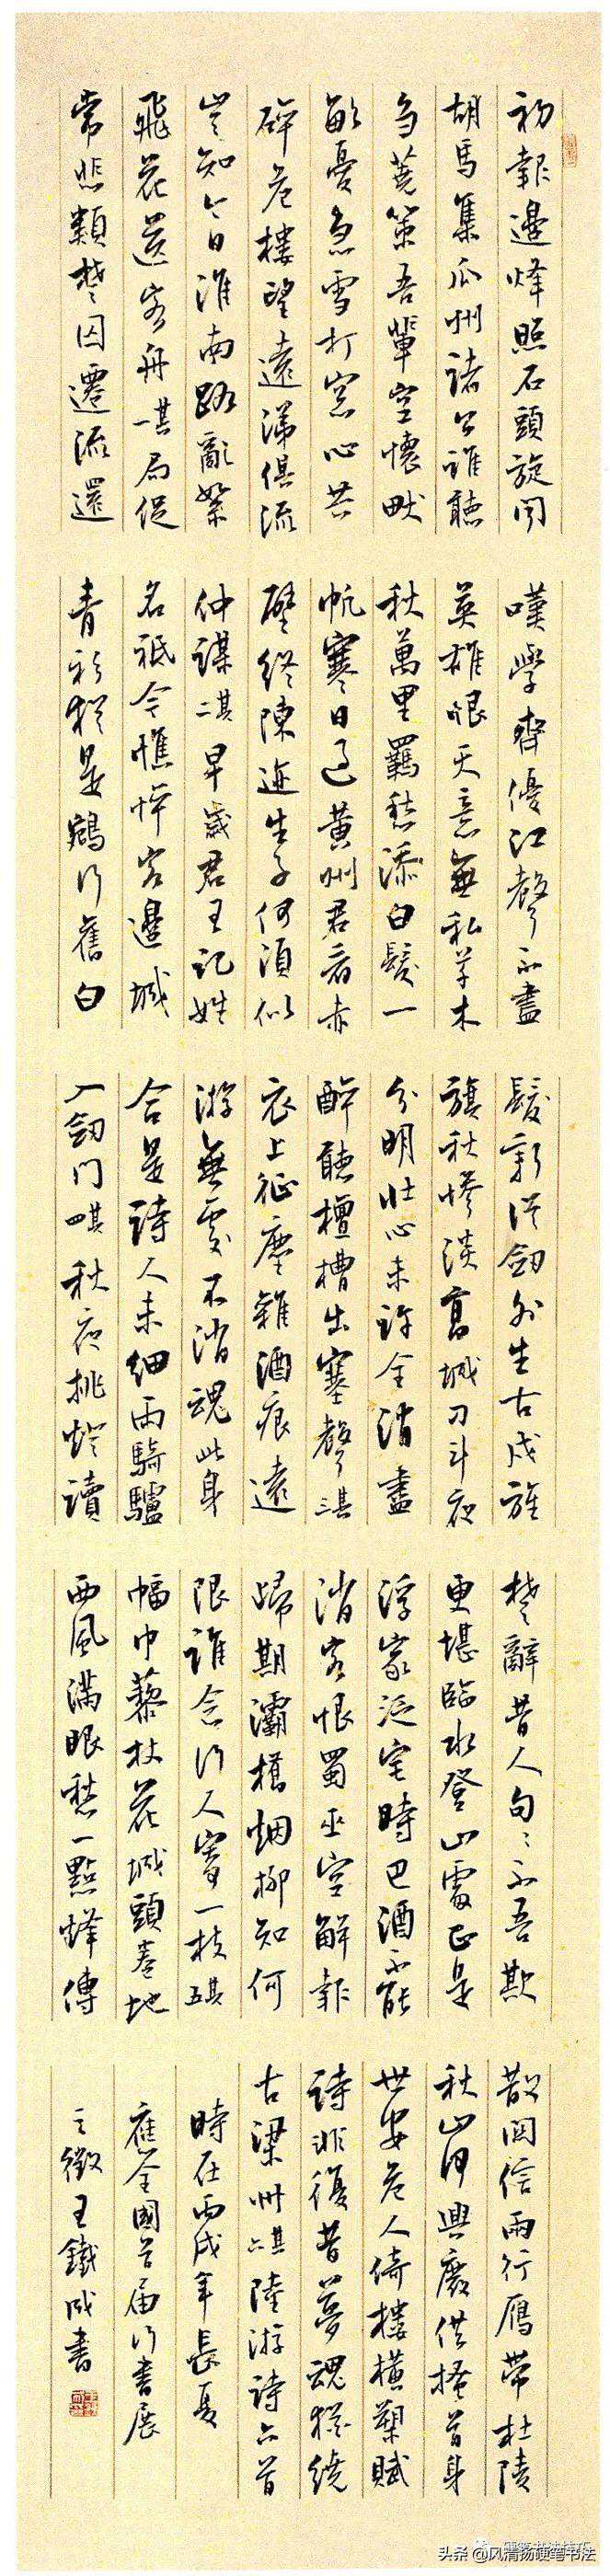 初報邊烽照石頭旋聞
胡馬集瓜州諸公誰聽
芻蕘策吾輩空懷畎
畝憂急雪打窓心共
碎危樓望遠涕俱流
豈知今日淮南路亂絮
飛花送客舟其一局促
常悲類楚囚遷流還
嘆學齊優江聲不盡
英雄恨天意無私草木
秋萬里羈愁添白髮一
帆寒日過黃州君看赤
壁終陳迹生子何須似
仲謀其二早歲君王記姓
名祗今憔悴客邊城
青衫猶是鵷行舊白
髮新從劍外生古戍旌
旗秋慘淡高城刀斗夜
分明壯心未許全消盡
醉聽檀槽出塞聲其三
衣上征塵雜酒痕遠
游無處不消魂此身
合是詩人未細雨騎驢
入劍門其四秋夜挑燈讀
楚辭昔人句々不吾欺
更堪臨水登山處正是
浮家泛宅時巴酒不能
消客恨蜀巫空解報
歸期灞橋烟柳知何
限誰念行人寄一枝其五
幅巾藜杖北城頭卷地
西風滿眼愁一點烽傳
散關信兩行雁帶杜陵
秋山河興廢供搔首身
世安危入倚樓橫槊賦
詩非復昔夢魂猶繞
古梁州其六陸游詩六首
時在丙戌年長夏
應全國首届行書展
之徵王鐵成書
头条 @风清扬硬笔书法